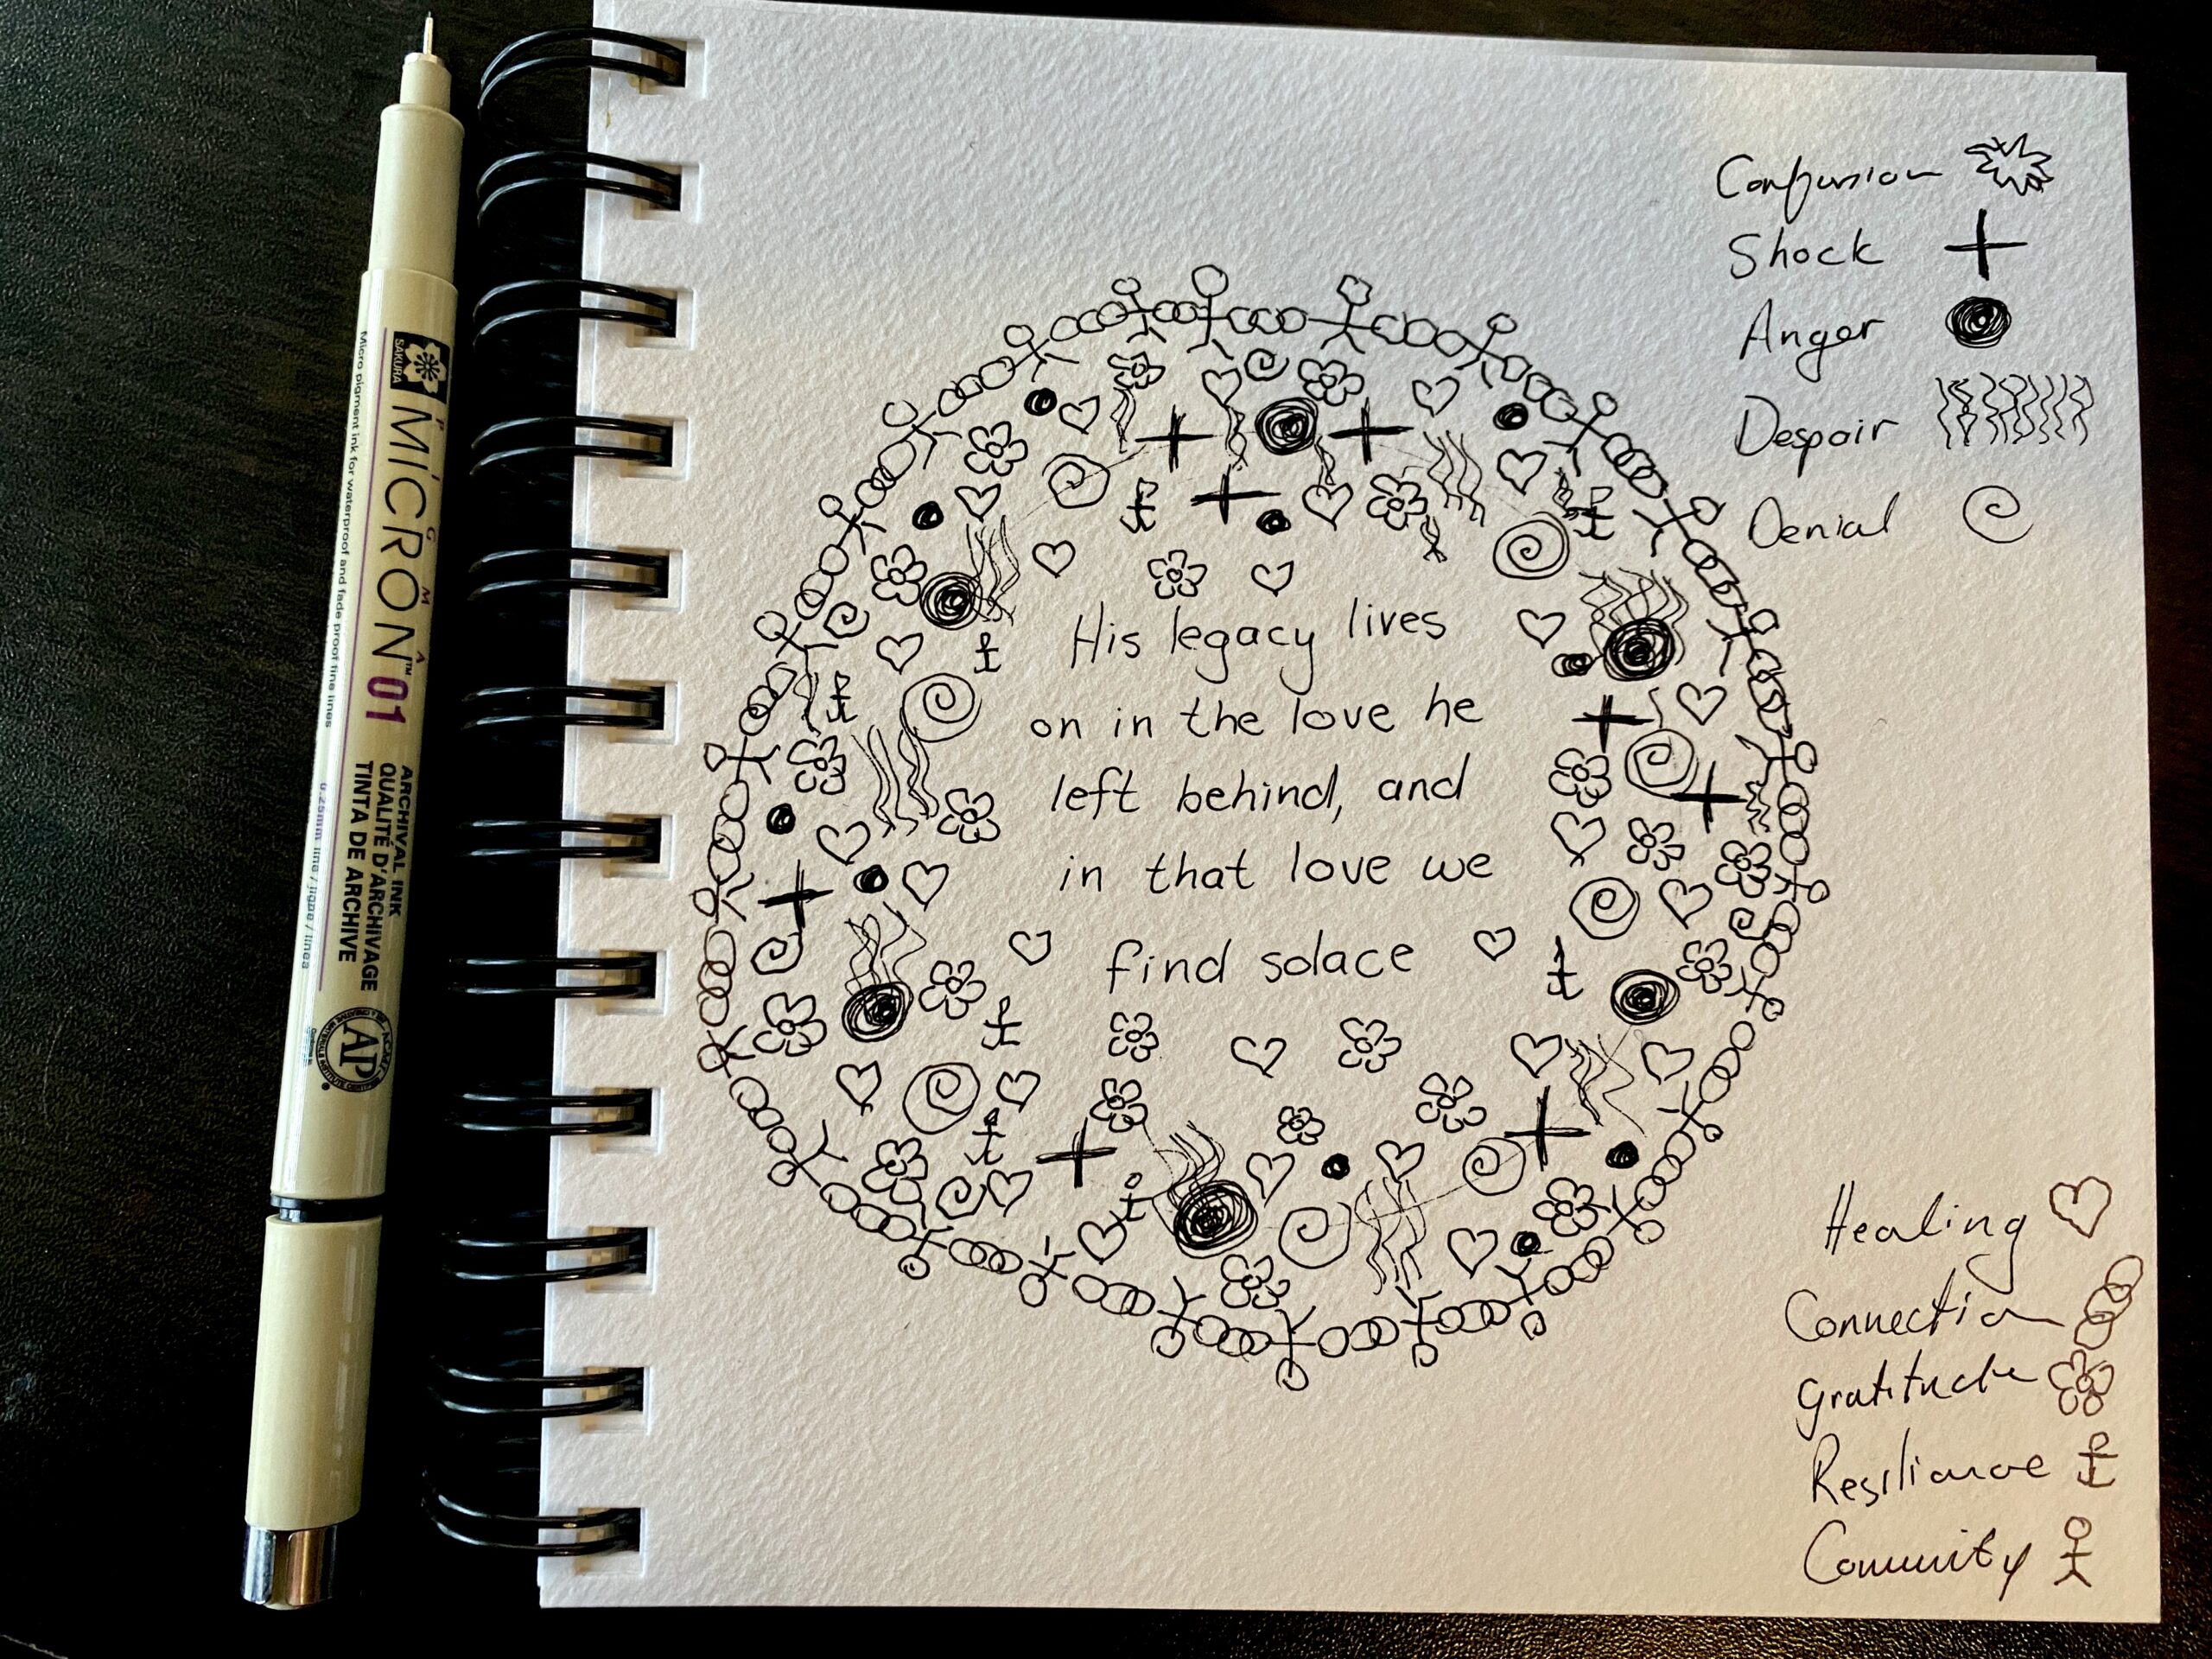 SAKURA
PIGMA
MICRON™ 01
Micro pigment ink for waterproof and fade proof fine lines
0.25mm line / ligne / línea
ARCHIVAL INK
QUALITÉ D'ARCHIVAGE
TINTA DE ARCHIVE
AP
Confusion
Shock
Anger
Despair
Denial
His legacy lives
on in the love he
left behind, and
in that love we
find solace
Healing
Connection
Gratitude
Resiliance
Comunity